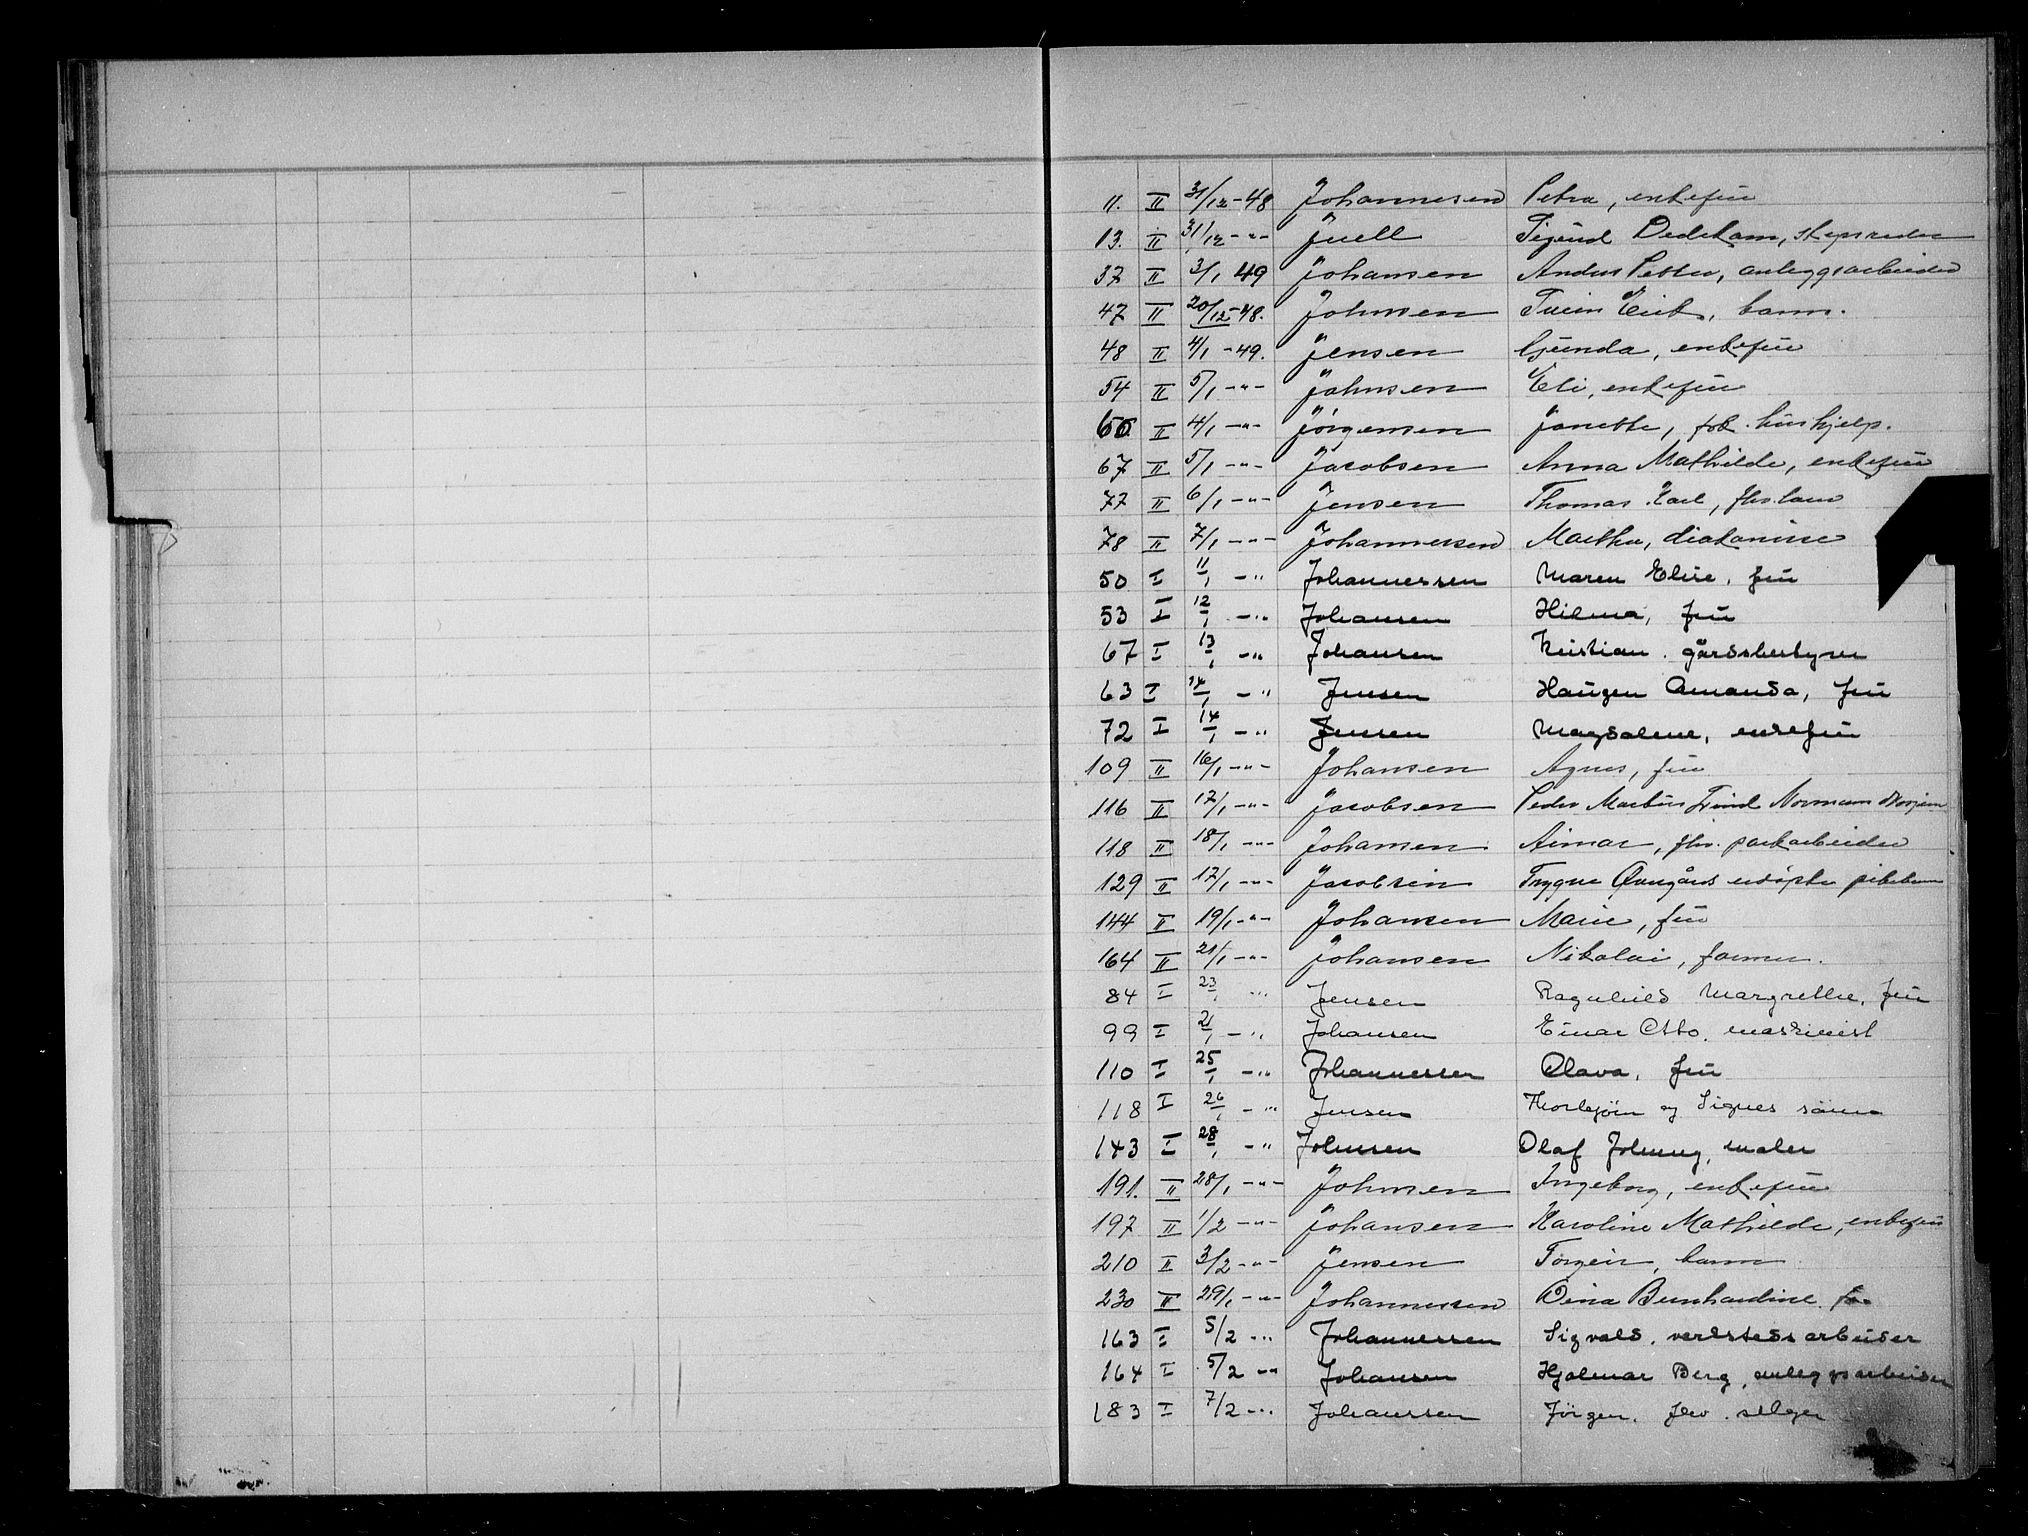 11. II 31/12-48 Johannesen Petra, enkefru
13. II 31/12 -"- Juell Sigurd Dedekam, skipsreder
37 II 3/1 49 Johansen Anders Petter, anleggsarbeider
47 II 20/12-48. Johnsen Svein Eirik, barn.
48 II 4/1 -49. Jensen Gunda, enkefru
54 II 5/1 -"- Johnsen Eli, enkefru
II 4/1 -"- Jörgensen Janette, hushjelp.
67 II 5/1 -"- Jacobsen Anna Mathilde, enkefru
77 II 6/1 -"- Jensen Thomas Karl,
78 II 7/1 -"- Johannessen Martha, diakonisse
50 I 11/1 -" Johannessen Maren Elise, fru
53 I 12/1 -" Johansen Hilma, fru
67 I 13/1 -" Johansen Kristian. gårdsbestyrer
63 I 14/1 -" Jensen Haugen Amanda, fru
72 I 14/1 -" Jensen Magdalene, enkefru
109 II 16/1 -"- Johansen Agnes, fru
116 II 17/1 -"- Jacobsen Peder Marius Normann
118 II 18/1 -"- Johansen Aimar, fhv. parkarbeider
129 II 17/1 -"- Jacobsen Trygve udöpte pikebarn
144 II 19/1 -"- Johansen Marie, fru
164 II 21/1 -"- Johansen Nikolai, farmer.
84 I 23/1 " Jensen Ragnhild Margrethe, fru
99 I 21/1 -" Johansen Einar Otto. maskinist
110 I 25/1 -" Johannessen Olava, fru
118 I 26/1 -" Jensen Thorbjörn og Signes sönn
143 I 28/1 -" Johnsen Olaf Johnny, maler
191. II 28/1 -"- Johnsen Ingeborg, enkefru
197 II 1/2 -"- Johansen Karoline Mathilde, enkefru
210 II 3/2 -"- Jensen Torgeir, barn
230 II 29/1 -"- Johannessen Dina Bernhardine
163 I 5/2 -" Johannessen Sigvald. verkstedsarbeider
164 I 5/2 -" Johansen Hjalmar Berg, anleggsarbeider
183 I 7/2 -" Johanssen Jörgen. fhv. selger